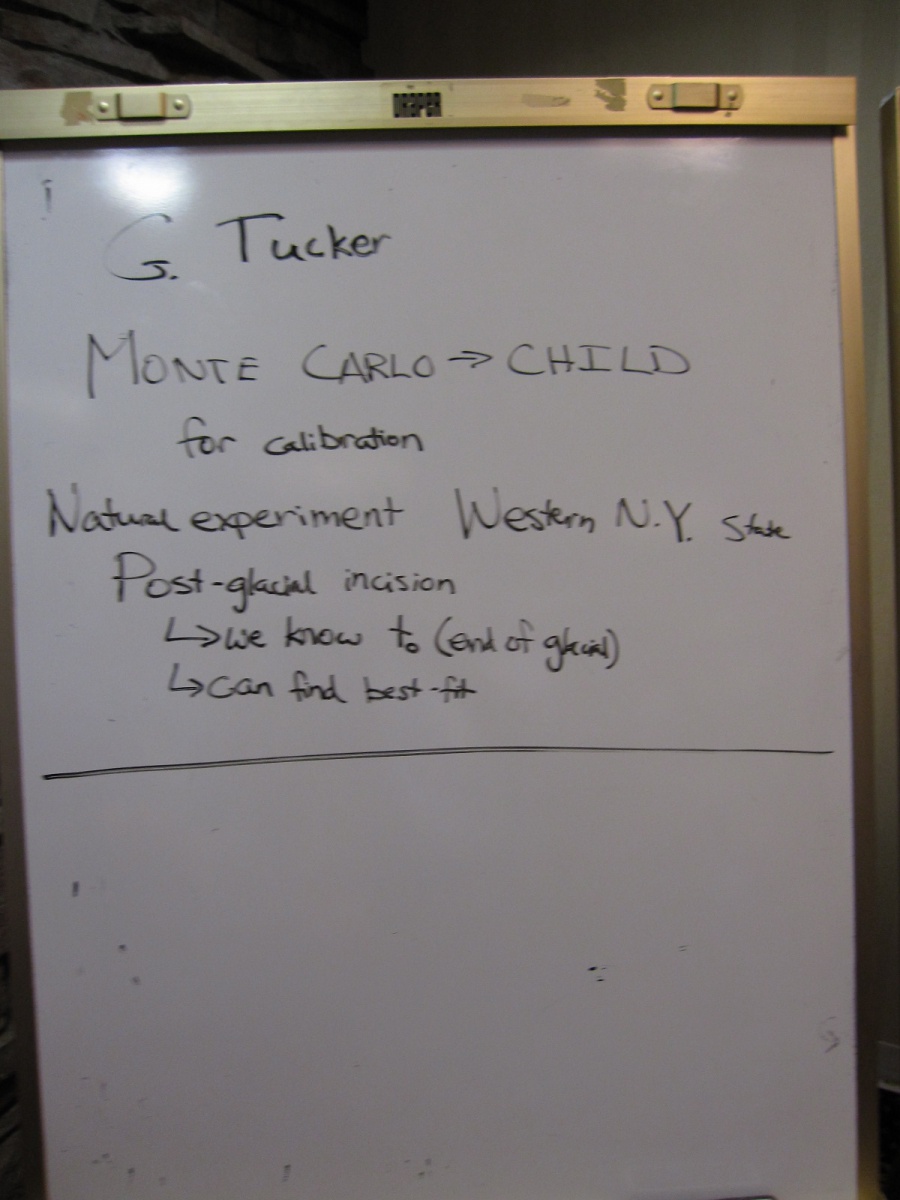 G. Tucker
MONTE CARLO → CHILD
for calibration
Natural experiment Western N.Y. State
Post-glacial incision
↳ we know to (end of glacial)
↳ can find best-fit